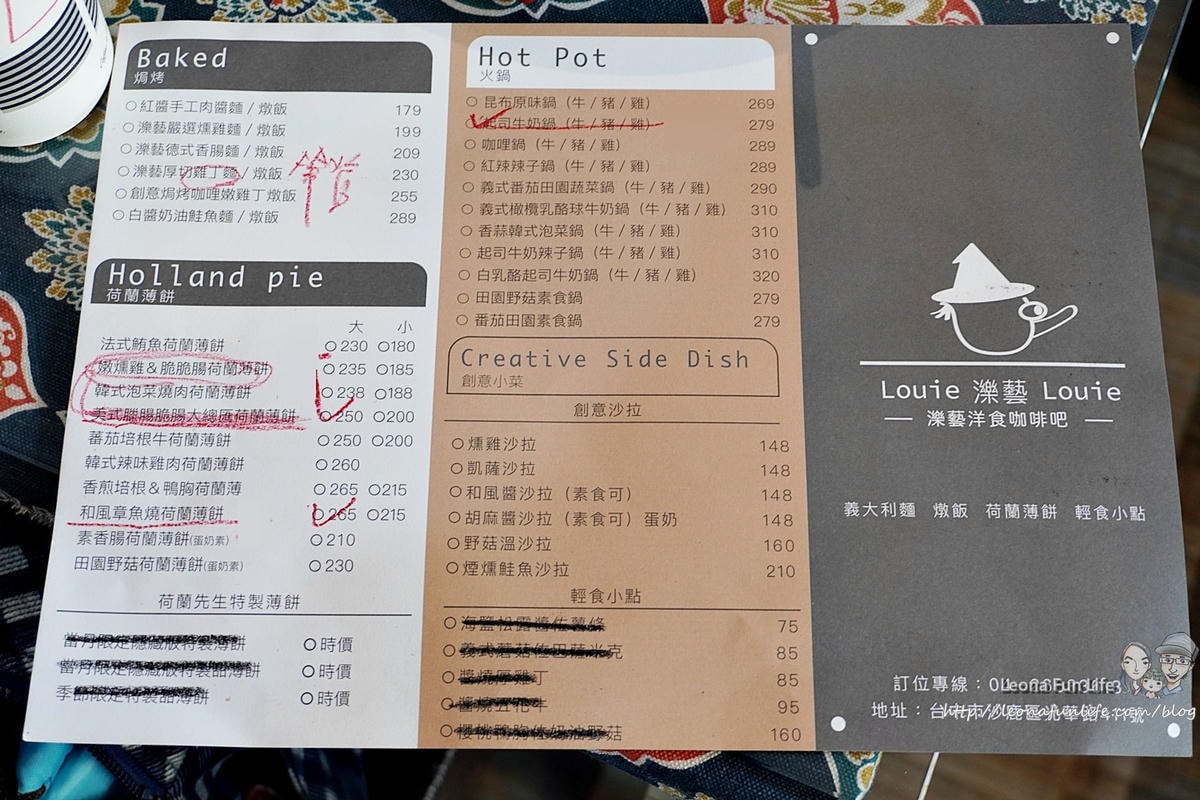 Baked
焗烤
紅醬手工肉醬麵 / 燉飯 179
濼藝嚴選燻雞麵 / 燉飯 199
濼藝德式香腸麵 / 燉飯 209
濼藝厚切雞丁麵 / 燉飯 230
創意焗烤咖哩嫩雞丁燉飯 255
白醬奶油鮭魚麵 / 燉飯 289
Holland pie
荷蘭薄餅
大 小
法式鮪魚荷蘭薄餅 230 180
嫩燻雞&脆脆腸荷蘭薄餅 235 185
韓式泡菜燒肉荷蘭薄餅 238 188
美式臘腸脆腸大總匯荷蘭薄餅 250 200
蕃茄培根牛荷蘭薄餅 250 200
韓式辣味雞肉荷蘭薄餅 260
香煎培根&鴨胸荷蘭薄 265 215
和風章魚燒荷蘭薄餅 265 215
素香腸荷蘭薄餅(蛋奶素) 210
田園野菇荷蘭薄餅(蛋奶素) 230
荷蘭先生特製薄餅
當月限定隱藏版特製薄餅 時價
當月限定隱藏版特製甜薄餅 時價
季節限定特製甜薄餅 時價
Hot Pot
火鍋
昆布原味鍋(牛 / 豬 / 雞) 269
起司牛奶鍋(牛 / 豬 / 雞) 279
咖哩鍋(牛 / 豬 / 雞) 289
紅辣辣子鍋(牛 / 豬 / 雞) 289
義式番茄田園蔬菜鍋(牛 / 豬 / 雞) 290
義式橄欖乳酪球牛奶鍋(牛 / 豬 / 雞) 310
香蒜韓式泡菜鍋(牛 / 豬 / 雞) 310
起司牛奶辣子鍋(牛 / 豬 / 雞) 310
白乳酪起司牛奶鍋(牛 / 豬 / 雞) 320
田園野菇素食鍋 279
番茄田園素食鍋 279
Creative Side Dish
創意小菜
創意沙拉
燻雞沙拉 148
凱薩沙拉 148
和風醬沙拉(素食可) 148
胡麻醬沙拉(素食可)蛋奶 148
野菇溫沙拉 160
煙燻鮭魚沙拉 210
輕食小點
海鹽松露醬佐薯條 75
義式蘑菇佐巴薩米克 85
醬燒厚雞丁 85
醬燒五花牛 95
櫻桃鴨胸佐奶油野菇 160
Louie 濼藝 Louie
濼藝洋食咖啡吧
義大利麵 燉飯 荷蘭薄餅 輕食小點
訂位專線:
LeonaFunLife
地址:台中市沙鹿區北華路
http://leonafunlife.com/blog